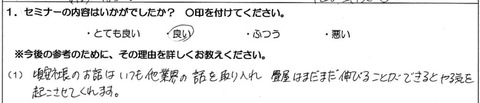 1．セミナーの内容はいかがでしたか？ 〇印を付けてください。
・とても良い ・良い ・ふつう ・悪い
※今後の参考のために、その理由を詳しくお教えください。
(1) 社長のお話はいつも他業界の話を取り入れ 畳屋はまだまだ伸びることができるとやる気を
起こさせてくれます。